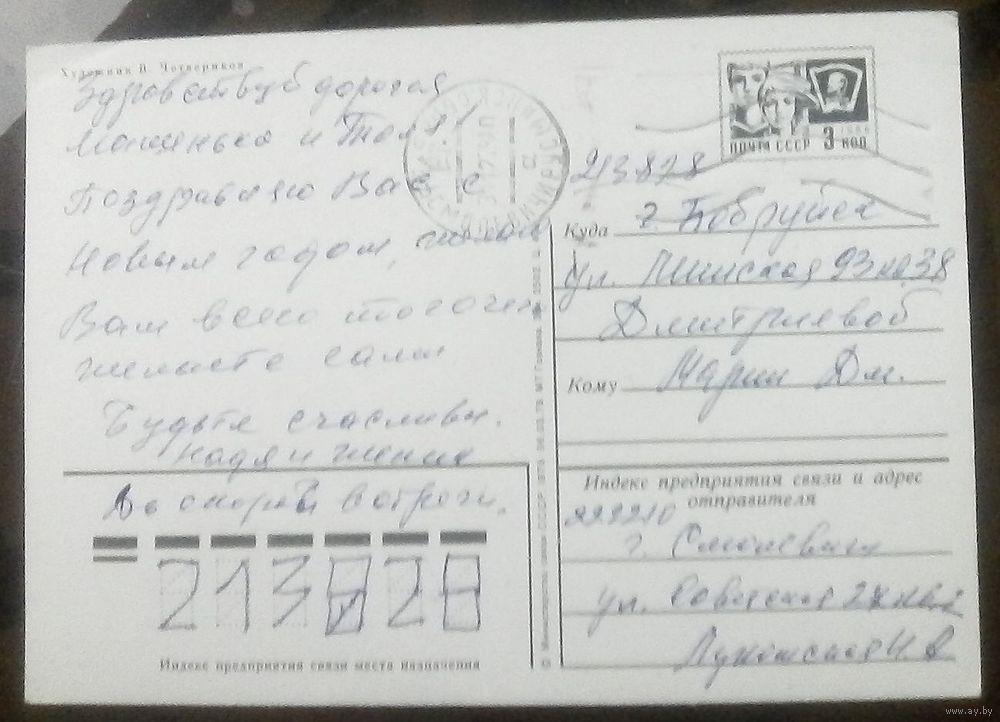 Художник В. Четвериков
Здравствуй дорогая
Машенька и Толя!
Поздравляю Вас с
Новым годом, желаю
Вам всего того чего
желаете сами
Будьте счастливы.
Надя и Женик
До скорой встречи.
213828
Индекс предприятия связи места назначения
ПОЧТА СССР 3 КОП
213828
Куда г. Бобруйск
ул. Минская 93 кв. 38
Дмитриевой
Кому Марии Дм.
Индекс предприятия связи и адрес
отправителя
222210
г. Смолевичи
ул. Советская
Н. В.
www.ay.by